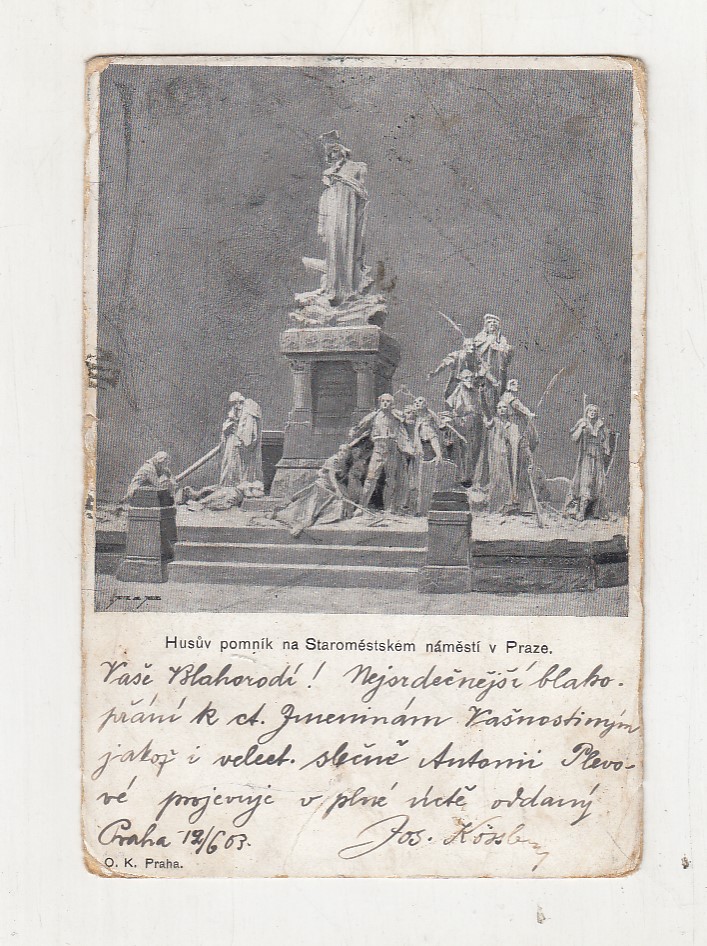 Husův pomník na Staroměstském náměstí v Praze.
Vaše Blahorodí! Nejsrdečnější blaho-
přání k ct. Jmeninám Vašnostiným
jakož i velect. slečně Antonii Plevo-
vé projevuje v plné úctě oddaný
Praha 12/6 03. Jos.
O. K. Praha.